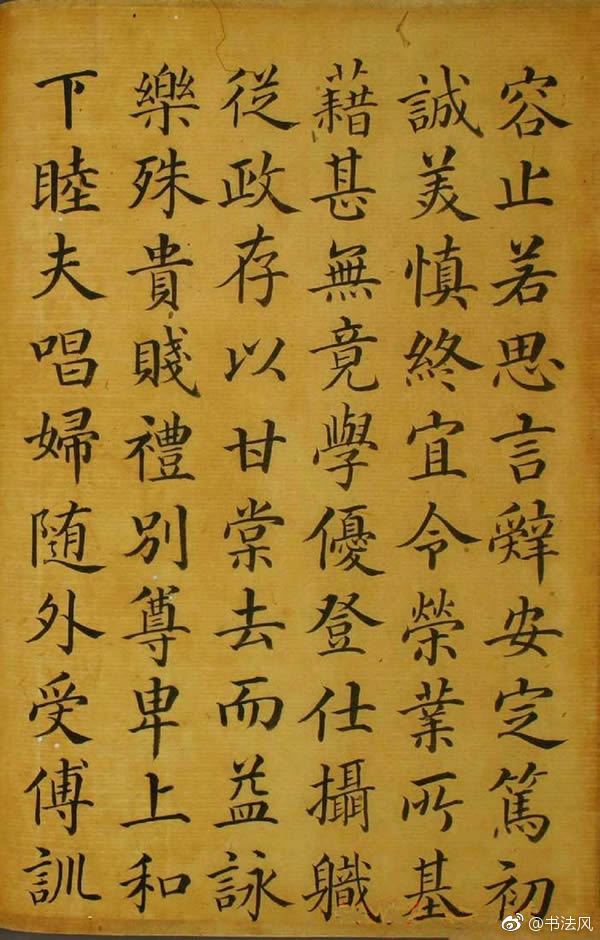 容止若思言辤安定篤初
誠美慎終宜令榮業所基
藉甚無竟學優登仕攝職
從政存以甘棠去而益詠
樂殊貴賤禮別尊卑上和
下睦夫唱婦随外受傅訓
@书法风